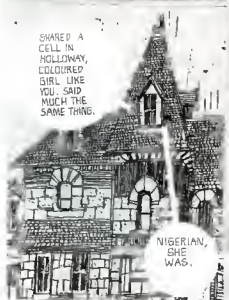 SHARED A
CELL IN
HOLLOWAY,
COLOURED
GIRL LIKE
YOU. SAID
MUCH THE
SAME THING.
NIGERIAN,
SHE
WAS.